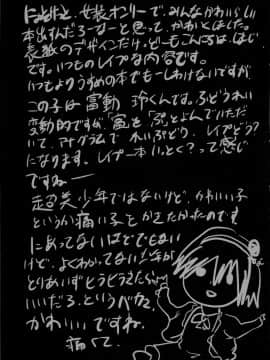 女装オンリーで、みんなかわいらしい
本出すんだろーなーと思って、かわいくしました。
表紙のデザインだけ。どーもこんにちは、はじ
です。いつものレイプな内容です。
いつもよりうすめの本でもーしわけないですが、
この子は富動 玲くんです。ふどうれい
変動的ですが、を"ぷ"とよんでいただ
いて、アナグラムで れいぷどう、レイプどう?
になります。レイプ一本いっとく?って感じ
ですねー
超美少年ではないけど、かわいい子
というか痛い子をかきたかったのです
にあってないほどでもない
けど、よくわかってない少年が
とりあえず
いいだろ、という
かわいいですね
痛くて。